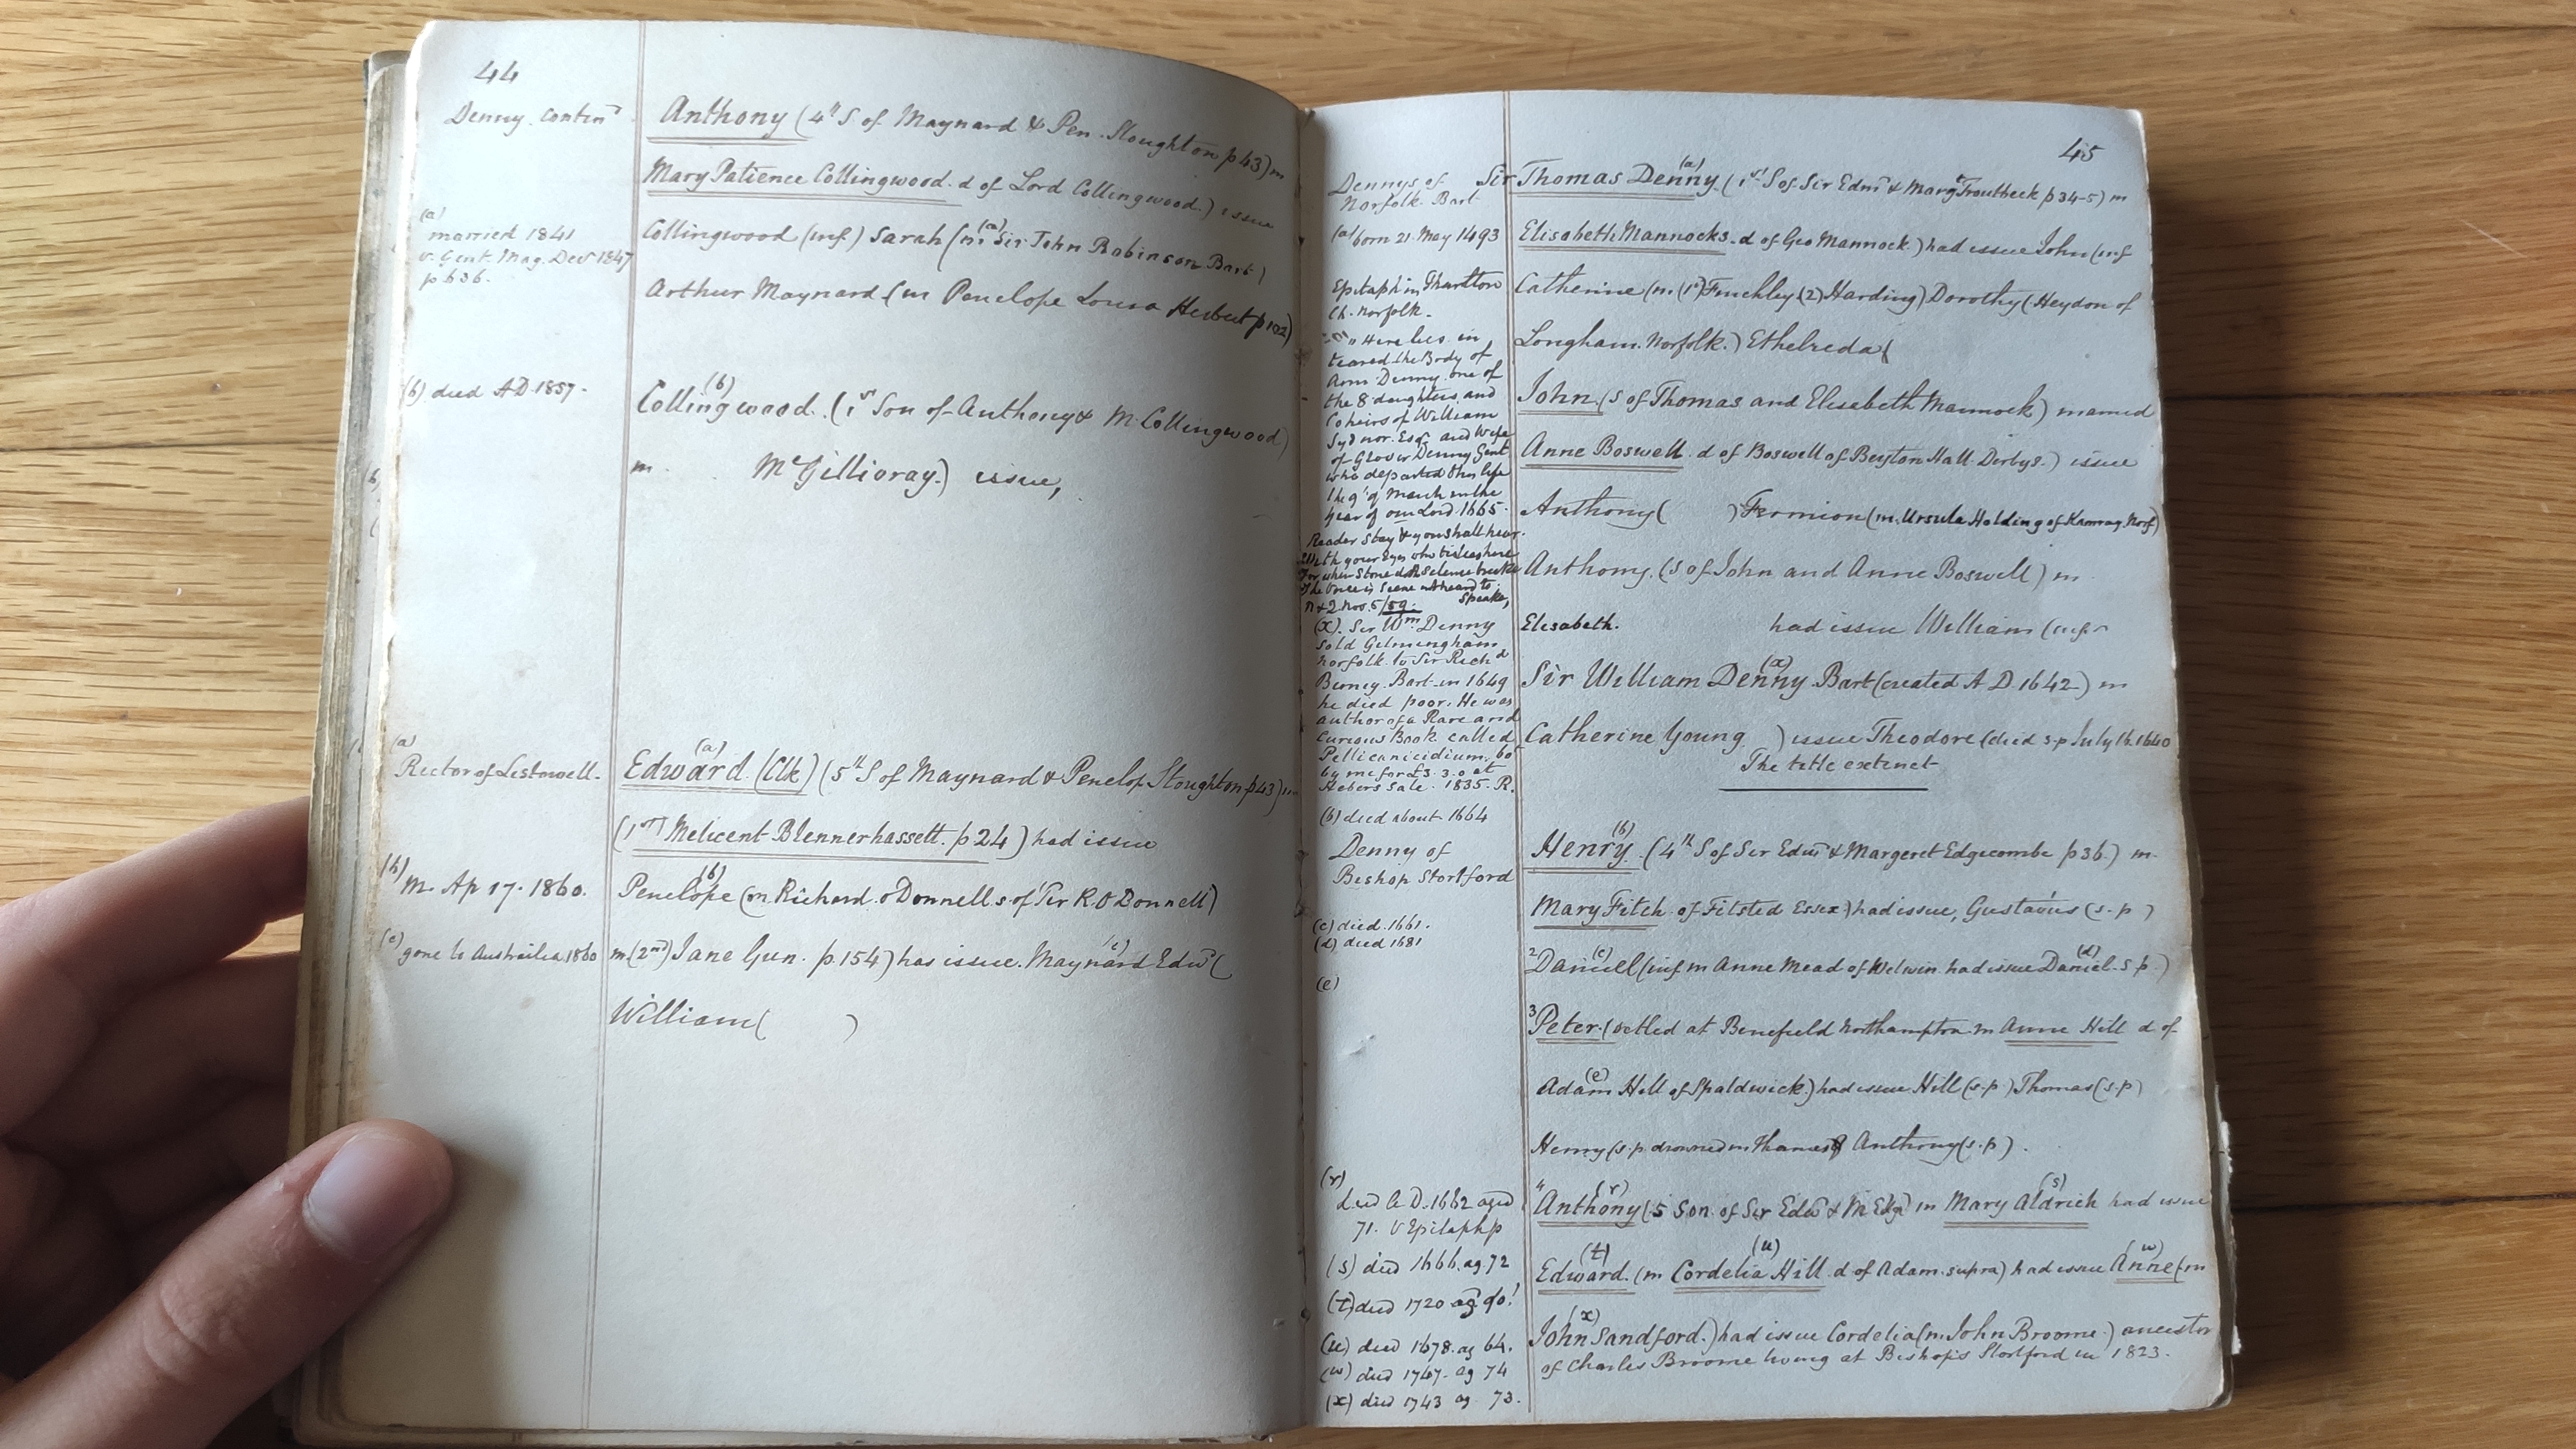 44
Denny. Contin^d
Anthony (4^th S of Maynard & Pen. Stoughton p 43) m
Mary Patience Collingwood. d of Lord Collingwood.) issue
(a)
married 1841
v. Gent. Mag. Dec^r 1847
p 636.
Collingwood (inf) Sarah (m (a) Sir John Robinson Bart)
Arthur Maynard (m Penelope Louisa Herbert p 102)
(b) died AD 1857.
(b)
Collingwood. (1^st Son of Anthony & M. Collingwood)
m. M^cGillioray.) issue,
(a)
Rector of Listowell.
(a)
Edward. (Clk) (5^th S of Maynard & Penelop Stoughton p43) m
(1^st) Melicent Blennerhassett. p 24) had issue
(b) m. Ap 17. 1860.
(b)
Penelope (m Richard. o Donnell s. of Sir R. O Donnell)
(c) gone to Austrailia 1860
(c)
m (2^nd) Jane Gun. p. 154) has issue. Maynard Edw^d (
William ( )
45
Dennys of
Norfolk. Bart
(a) born 21 May 1493
Epitaph in Thurlton
Ch. Norfolk.
"Here lies in
teared the Body of
Ann Denny one of
the 8 daughters and
Coheirs of William
Sydnor. Esq^r and Wife
of Glover Denny Gent
who departed this life
the 9^t of March in the
year of our Lord 1665.
Reader Stay & you shall hear.
With your Eyes who tis lies here
For when Stone doth Silence breake
The Voice is Seene not heard to
Speake,
N & 2. Nov. 5/59.
(x). Sir W^m Denny
sold Gelmingham
Norfolk to Sir Rich^d
Berney. Bart in 1649
he died poor. He was
author of a Rare and
Curious Book called
Pellicanicidium. bo^t
by me for £3.3.0 at
Hebers Sale. 1835. R.
(b) died about 1664
Denny of
Bishop Stortford
(c) died. 1661.
(d) died 1681
(e)
(r)
died A D. 1662 aged
71. v Epitaph p
(s) died 1666. ag 72
(t) died 1720 ag^d 90!
(u) died 1678. ag 64.
(w) died 1747. ag 74
(x) died 1743 ag 73.
(a)
Sir Thomas Denny (1^st S of Sir Edm^d & Mary Troutbeck p 34-5) m
Elisabeth Mannocks. d of Geo Mannock.) had issue John (inf
Catherine (m. (1^st) Finchley (2) Harding) Dorothy (Heydon of
Longham. Norfolk.) Ethelreda (
John. (S of Thomas and Elisabeth Mannock) married
Anne Boswell. d of Boswell of Beyton Hall. Derbys.) issue
Anthony ( ) Fermion (m. Ursula Holding of Norf)
Anthony. (S of John and Anne Boswell) m
Elisabeth. had issue William (inf
(x)
Sir William Denny Bart (created A D. 1642) m
Catherine Young ) issue Theodore (died s.p July 16. 1640
The title extinct
(b)
Henry. (4^th S of Sir Edw^d & Margeret Edgecombe p 36.) m.
Mary Fitch. of Fitsted Essex.) had issue, Gustavus (s.p )
(c) (d)
2 Daniell (inf m Anne Mead of Welwin. had issue Daniel. s.p.)
3 Peter. (setled at Benefield Northampton. m Anne Hill d of
(e)
Adam Hill of Spaldwick.) had issue Hill (s.p) Thomas (s.p)
Henry (s.p. drowned in Thames & Anthony (s.p) .
(r) (s)
4 Anthony (5 Son of Sir Edw^d & M Edge) m Mary Aldrich had issue
(t) (u) (w)
Edward. (m Cordelia Hill. d of Adam. supra) had issue Anne (m
(x)
John Sandford.) had issue Cordelia (m. John Broome.) ancestor
of Charles Broome living at Bishops Stortford in 1823.